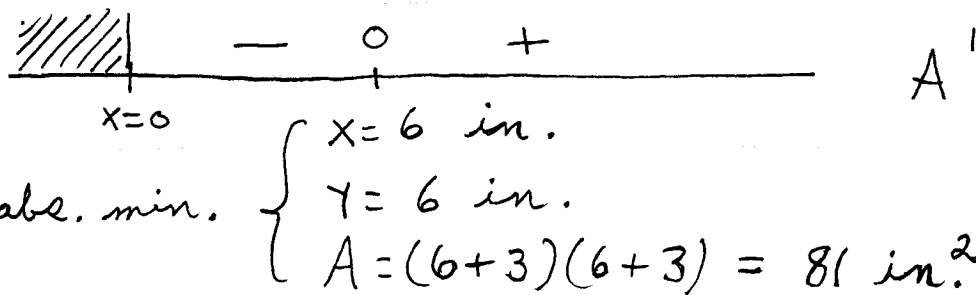 − 0 + A'
x=0
abs. min. { x= 6 in.
Y= 6 in.
A=(6+3)(6+3) = 81 in.²